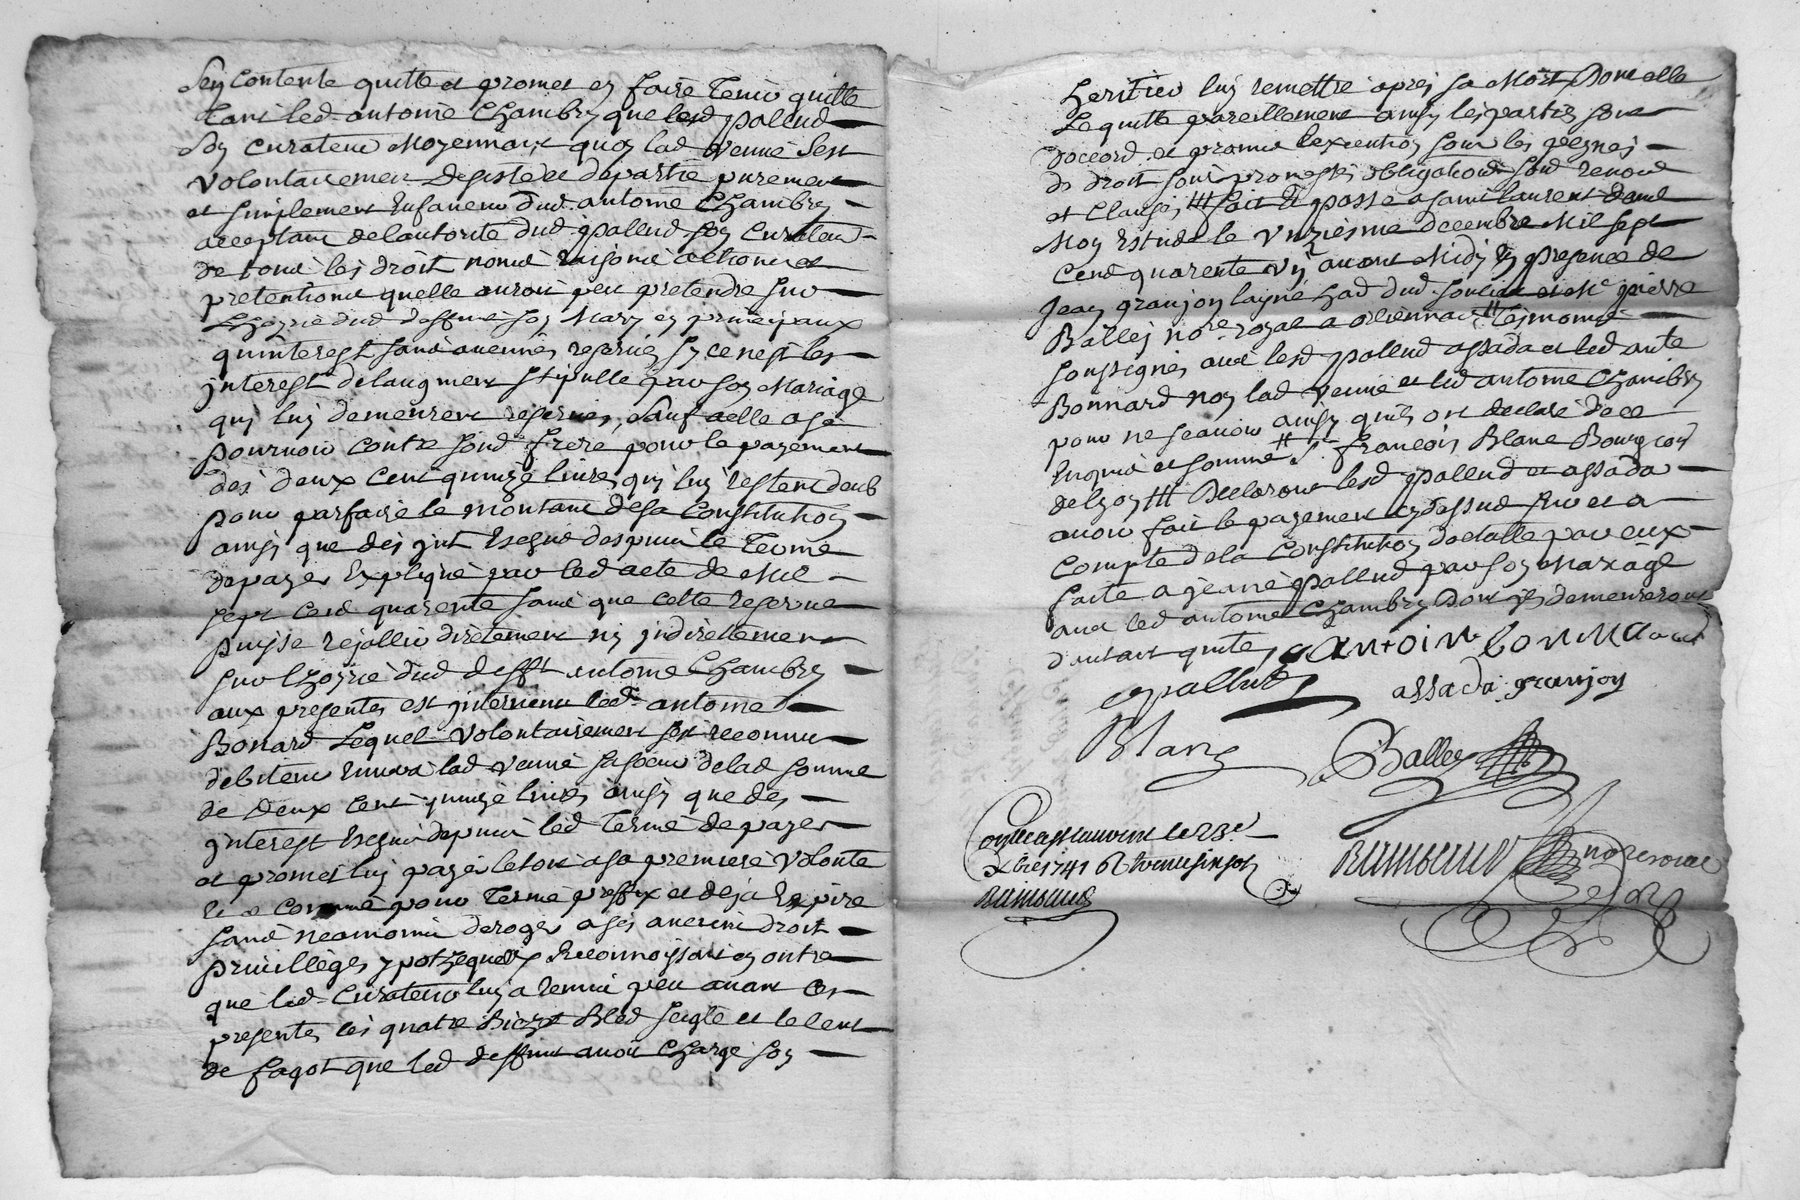 Sen contente quitte et promet en faire tenir quitte
tant led antoine Chambry que led pallud
son curateur moyennant quoy lad veuve sest
volontairement desisté et departie purement
et simplement en faveur dud antoine Chambry
acceptant de lautorité dud pallud son curateur
de tous les droit noms raisons actions et
pretentions quelle auroit peu pretendre sur
Lhoyrie dud deffunt son mary en principaux
quinterest sans aucunes reserves sy ce nest les
interest de laugment stipullé par son mariage
quy luy demeurent reservés, sauf a elle a se
pourvoir contre sond frere pour le payement
des deux cent quinze livres quy luy restent deub
pour parfaire le montant de sa constitution
ainsy que des int escheus despuis le terme
de payer expliqué par led acte de mil
sept cent quarente sans que cette reserve
puisse rejallir directement ny indirectement
sur lhoyrie dud defft antoine Chambry
aux presentes est intervenu led antoine
Bonard Lequel volontairement sest reconnu
debiteur envers lad veuve sa soeur de lad somme
de deux cent quinze livres ainsy que des
interest escheus depuis led terme de payer
et promet luy payer le tout a sa premiere volonté
et comme pour terme preffix et deja expiré
sans neanmoins deroger a ses anciens droit
privillèges ypotheques Reconnoissant en outre
que led curateur luy a remis peu avant ces
presentes les quatre bichet bled seigle et le cent
de fagot que led deffunt avoit chargé son
heritier luy remettre apres sa mort dont elle
Le quitte pareillement ainsy les parties sont
daccord et promis lexecution sous les peynes
de droit sous promesses obligations sous renon
et clauses fait et passé a saint laurent dans
mon estude le unziesme decembre mil sept
cent quarente un avant midy en presence de
Jean granjon layné had dud soulier et Me pierre
Balley nore royal a orliennas tesmoins
soussignés avec lesd pallud assada et led ante
Bonnard non lad veuve et led antoine Chambry
pour ne scavoir ainsy quils ont declaré de ce
enquis et sommés sr francois Blanc Bourgeois
de lyon Declarant lesd pallud et assada
avoir fait le payement cy dessus sur et a
compte de la constitution dotalle par eux
faite a jeanne pallud par son mariage
avec led antoine Chambry dont ils demeureront
dautant quites antoin bonnard
pallud assada granjon
Blanc Balley
Controllé a st laurent le 23e
xbre 1741
Rambaud
Rambaud no royal